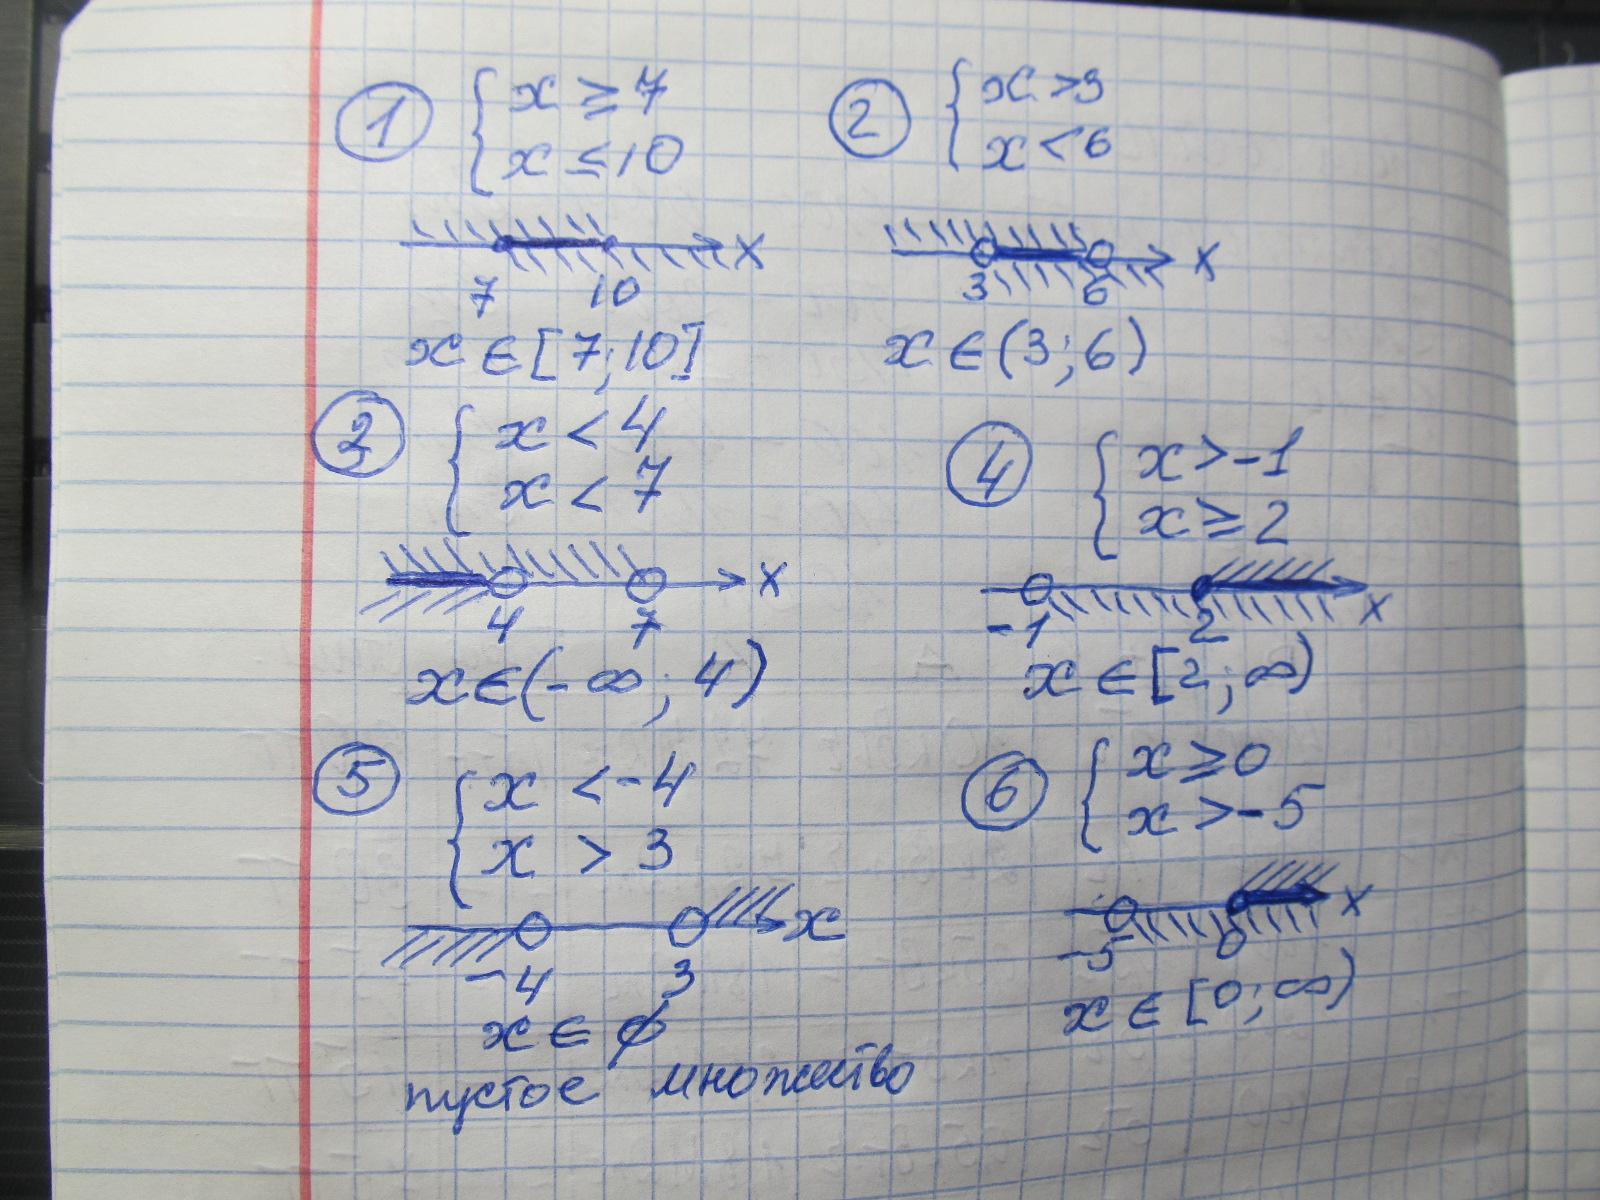 ① { x ≥ 7
x ≤ 10
x
7 10
x ∈ [7; 10]
② { x > 3
x < 6
x
3 6
x ∈ (3; 6)
③ { x < 4
x < 7
x
4 7
x ∈ (-∞; 4)
④ { x > -1
x ≥ 2
x
-1 2
x ∈ [2; ∞)
⑤ { x < -4
x > 3
x
-4 3
x ∈ ∅
пустое множество
⑥ { x ≥ 0
x > -5
x
-5 0
x ∈ [0; ∞)